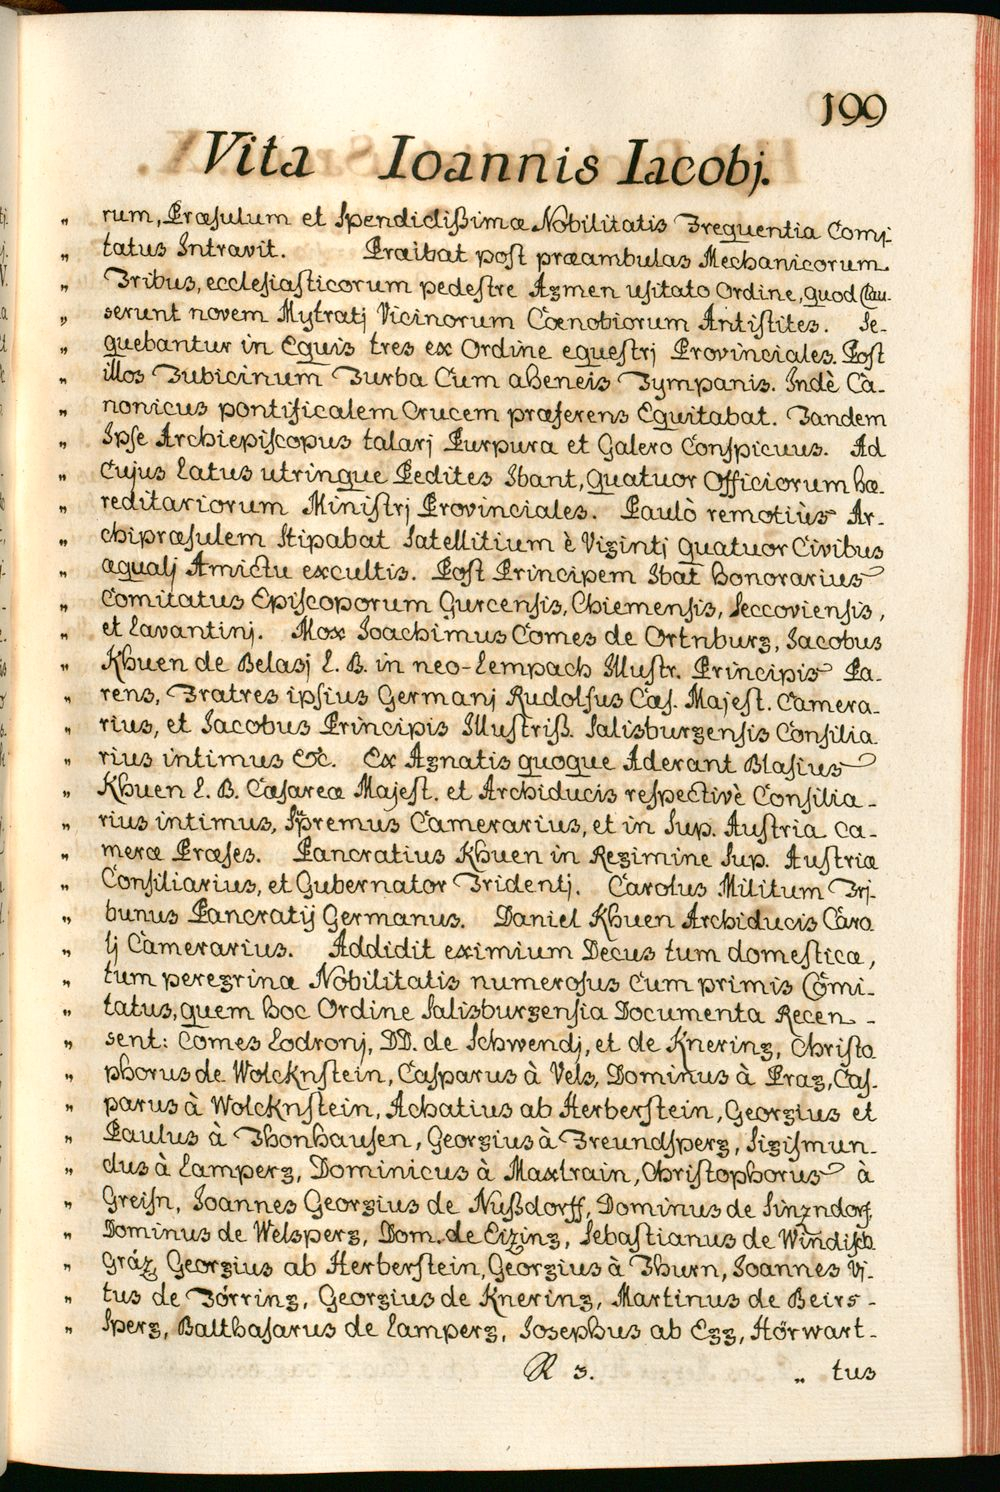 199
Vita Ioannis Iacobj.
„ rum, Præsulum et Spendidißimæ Nobilitatis Frequentia Comi-
„ tatus Intravit. Præibat post præambulas Mechanicorum
„ Tribus, ecclesiasticorum pedestre Agmen usitato Ordine, quod Clau-
„ serunt novem Mytratj Vicinorum Cœnobiorum Antistites. Se-
„ quebantur in Equis tres ex Ordine equestrj Provinciales. Post
„ illos Tubicinum Turba Cum aheneis Tympanis. Indè Ca-
„ nonicus pontificalem Crucem præferens Equitabat. Tandem
„ Ipse Archiepiscopus talarj Purpura et Galero Conspicuus. Ad
„ Cujus Latus utrinque Pedites Ibant, Quatuor Officiorum hæ-
„ reditariorum Ministrj Provinciales. Paulò remotiùs Ar-
„ chipræsulem Stipabat Satellitium è Vigintj quatuor Civibus
„ æqualj Amictu excultis. Post Principem Ibat honorarius
„ Comitatus Episcoporum Gurcensis, Chiemensis, Seccoviensis,
„ et Lavantinj. Mox Joachimus Comes de Ortnburg, Jacobus
„ Khuen de Belasj L. B. in neo-Lempach Illustr. Principis Pa-
„ rens, Fratres ipsius Germanj Rudolfus Cæs. Majest. Camera-
„ rius, et Jacobus Principis Illustriß. Salisburgensis Consilia
„ rius intimus &c. Ex Agnatis quoque Aderant Blasius
„ Khuen L. B. Cæsareæ Majest. et Archiducis respectivè Consilia-
„ rius intimus, Supremus Camerarius, et in Sup. Austria Ca-
„ meræ Præses. Pancratius Khuen in Regimine Sup. Austriæ
„ Consiliarius, et Gubernator Tridentj. Carolus Militum Trj-
„ bunus Pancratij Germanus. Daniel Khuen Archiducis Caro
„ lj Camerarius. Addidit eximium Decus tum domesticæ,
„ tum peregrinæ Nobilitatis numerosus Cum primis Comi-
„ tatus, quem hoc Ordine Salisburgensia Documenta Recen-
„ sent: Comes Lodronj, DD. de Schwendj, et de Knering, Christo
„ phorus de Wolcknstein, Casparus à Vels, Dominus à Prag, Cas-
„ parus à Wolcknstein, Achatius ab Herberstein, Georgius et
„ Paulus à Thonhausen, Georgius à Freundsperg, Sigismun-
„ dus à Lamperg, Dominicus à Maxtrain, Christophorus à
„ Greisn, Joannes Georgius de Nußdorff, Dominus de Sinzndorf,
„ Dominus de Welsperg, Dom. de Eizing, Sebastianus de Windisch
„ Gráz, Georgius ab Herberstein, Georgius à Thurn, Joannes Vi-
„ tus de Törring, Georgius de Knering, Martinus de Beirs-
„ Sperg, Balthasarus de Lamperg, Josephus ab Egg, Hörwart-
R 3. „ tus